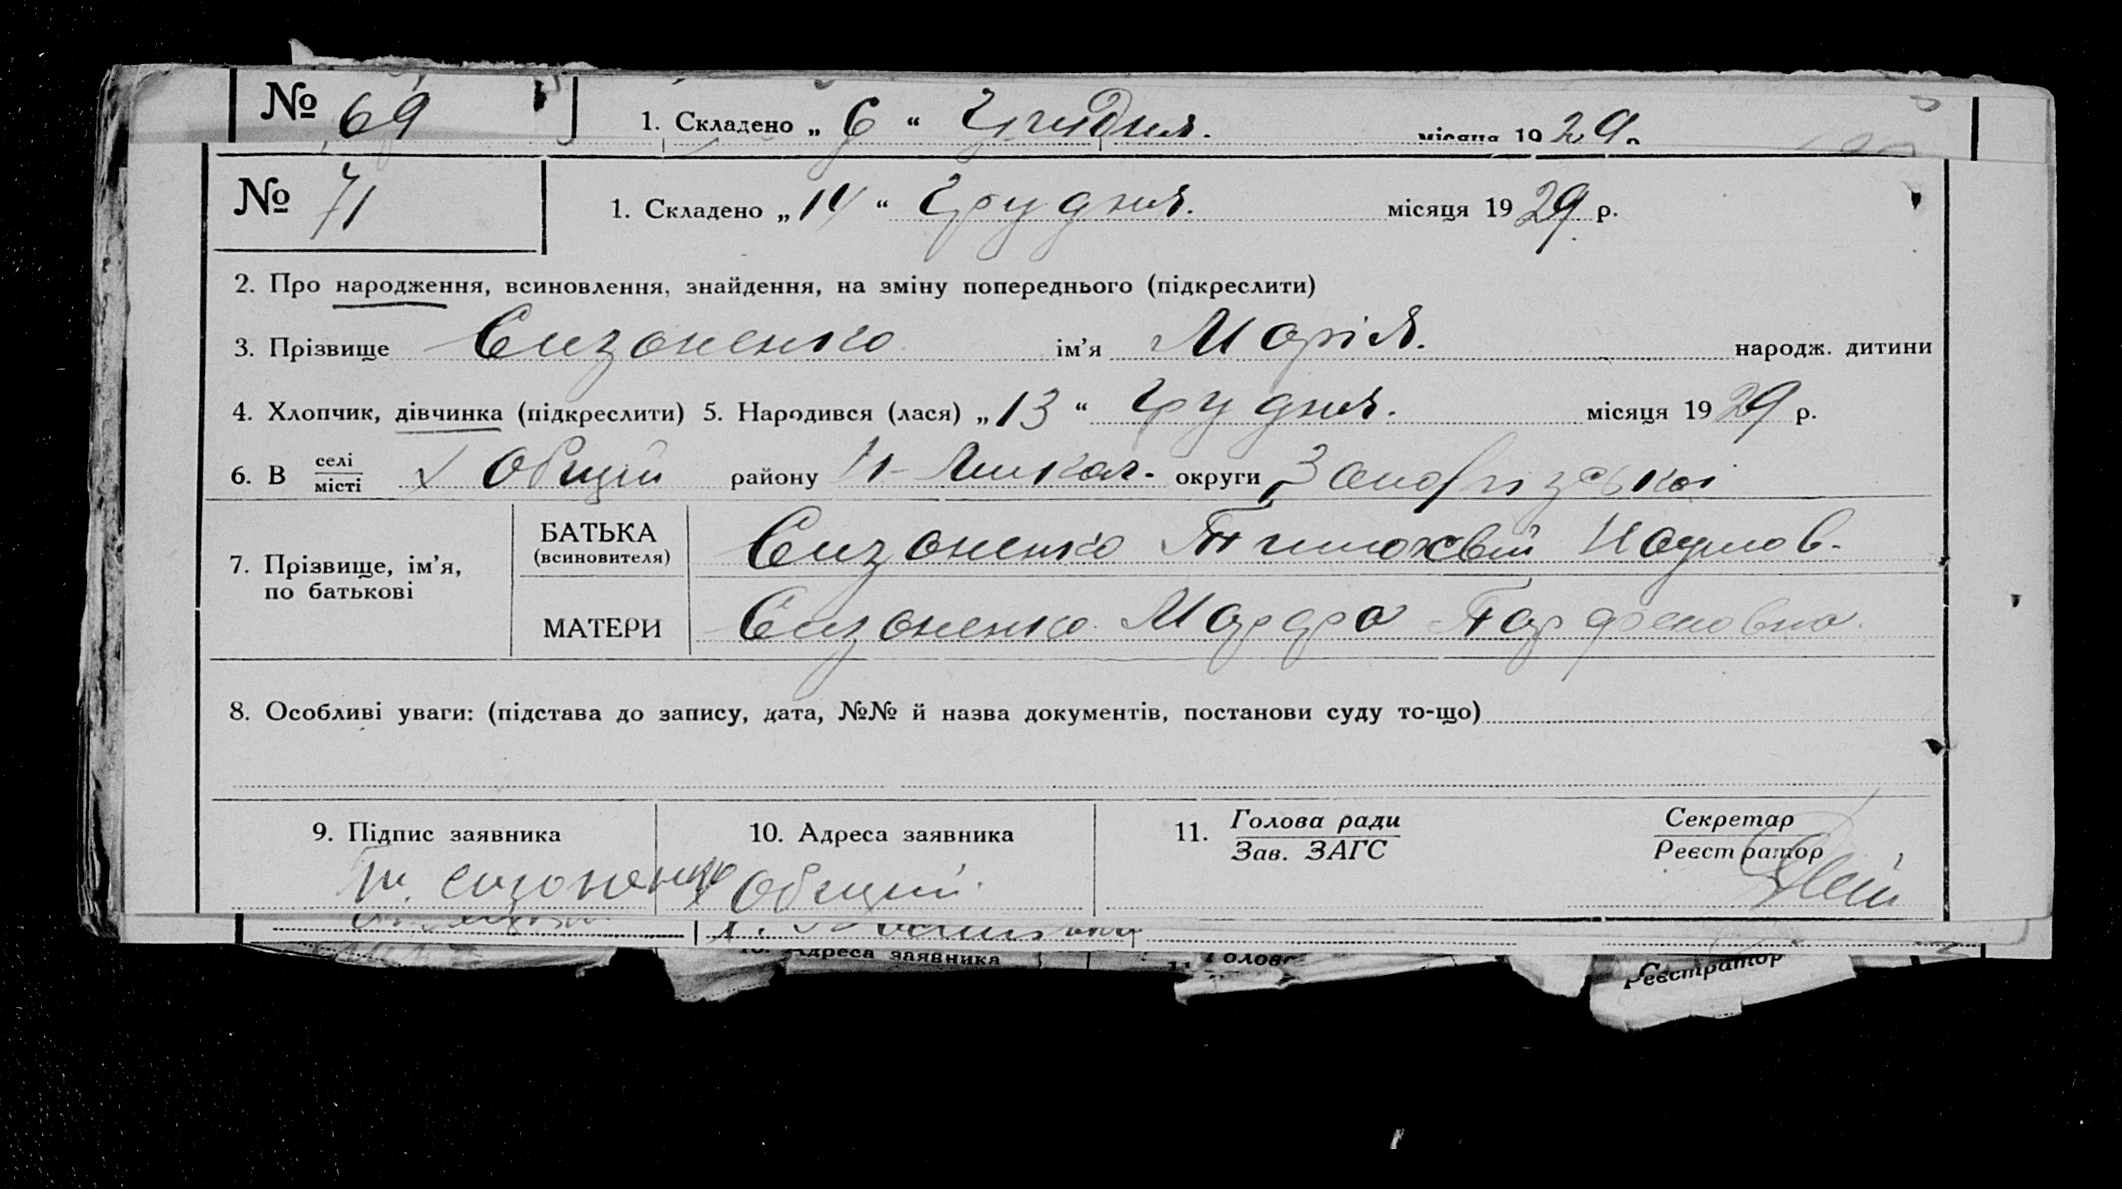 № 69 1. Складено „ 6 “ Грудня. місяця 1929 р.
№ 71 1. Складено „ 14 “ Грудня. місяця 1929 р.
2. Про народження, всиновлення, знайдення, на зміну попереднього (підкреслити)
3. Прізвище Сизоненко ім’я Марія. народж. дитини
4. Хлопчик, дівчинка (підкреслити) 5. Народився (лася) „ 13 “ Грудня. місяця 1929 р.
6. В селі/місті х Общий району округи Запорізської
7. Прізвище, ім’я, по батькові
БАТЬКА (всиновителя) Сизоненко Тимохвій Наумов.
МАТЕРИ Сизоненко Марфа Парфеновна
8. Особливі уваги: (підстава до запису, дата, №№ й назва документів, постанови суду то-що)
9. Підпис заявника 10. Адреса заявника 11. Голова ради/Зав. ЗАГС Секретар/Реєстратор
Т. сизоненко х Общий.
Адреса заявника Голова Реєстратор